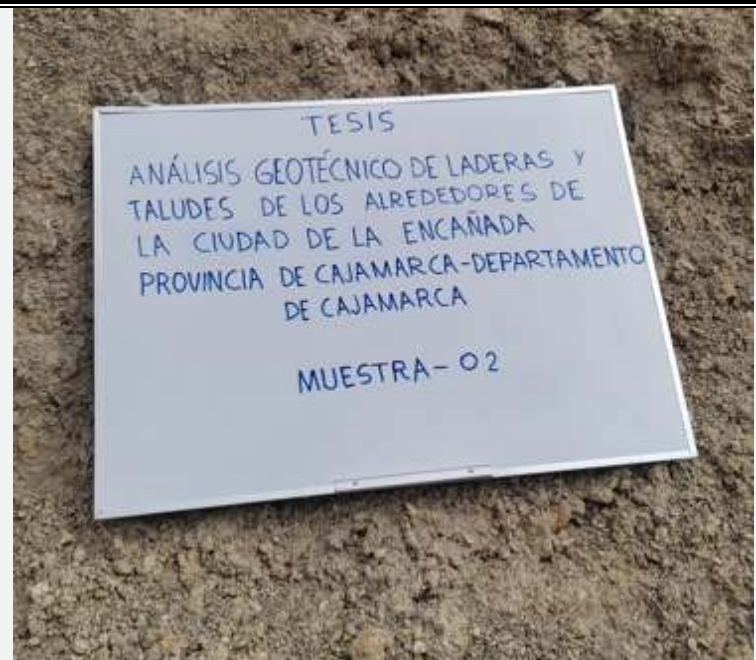 TESIS
ANÁLISIS GEOTÉCNICO DE LADERAS Y
TALUDES DE LOS ALREDEDORES DE
LA CIUDAD DE LA ENCAÑADA
PROVINCIA DE CAJAMARCA-DEPARTAMENTO
DE CAJAMARCA
MUESTRA-02